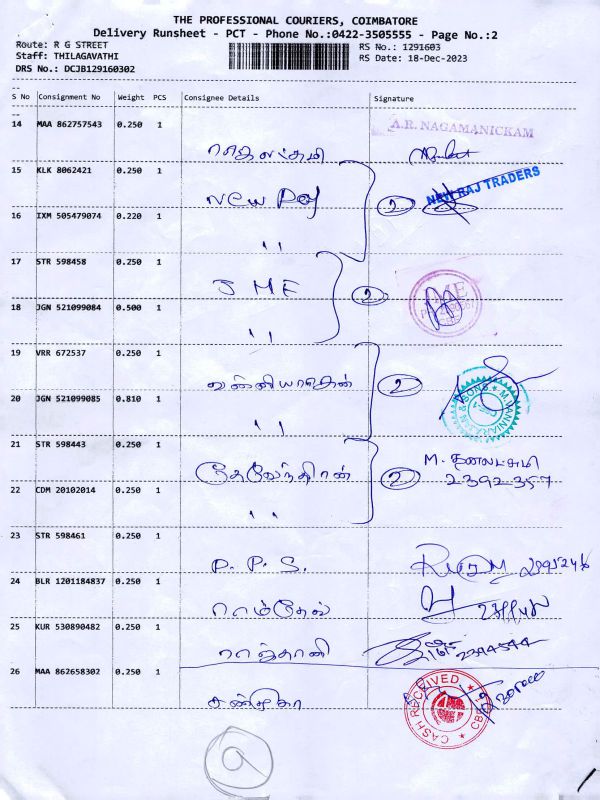 THE PROFESSIONAL COURIERS, COIMBATORE
Delivery Runsheet - PCT - Phone No.:0422-3505555 - Page No.:2
Route: R G STREET
RS No.: 1291603
Staff: THILAGAVATHI
RS Date: 18-Dec-2023
DRS No.: DCJB129160302
S No Consignment No Weight PCS Consignee Details Signature
14 MAA 862757543 0.250 1 A.R. NAGAMANICKAM
15 KLK 8062421 0.250 1 NEW RAJ TRADERS
New Raj 2
16 IXM 505479074 0.220 1
" "
17 STR 598458 0.250 1
S M E 2
18 JGN 521099084 0.500 1
" "
19 VRR 672537 0.250 1
வன்னியராஜன் 2
20 JGN 521099085 0.810 1
" "
21 STR 598443 0.250 1 M. தனலட்சுமி
தேவேந்திரன் 2 2392357
22 CDM 20102014 0.250 1
" "
23 STR 598461 0.250 1
P. P. S.
24 BLR 1201184837 0.250 1
ராம்தேவ்
25 KUR 530890482 0.250 1
ராஜ்தானி
26 MAA 862658302 0.250 1
CASH RECEIVED
9